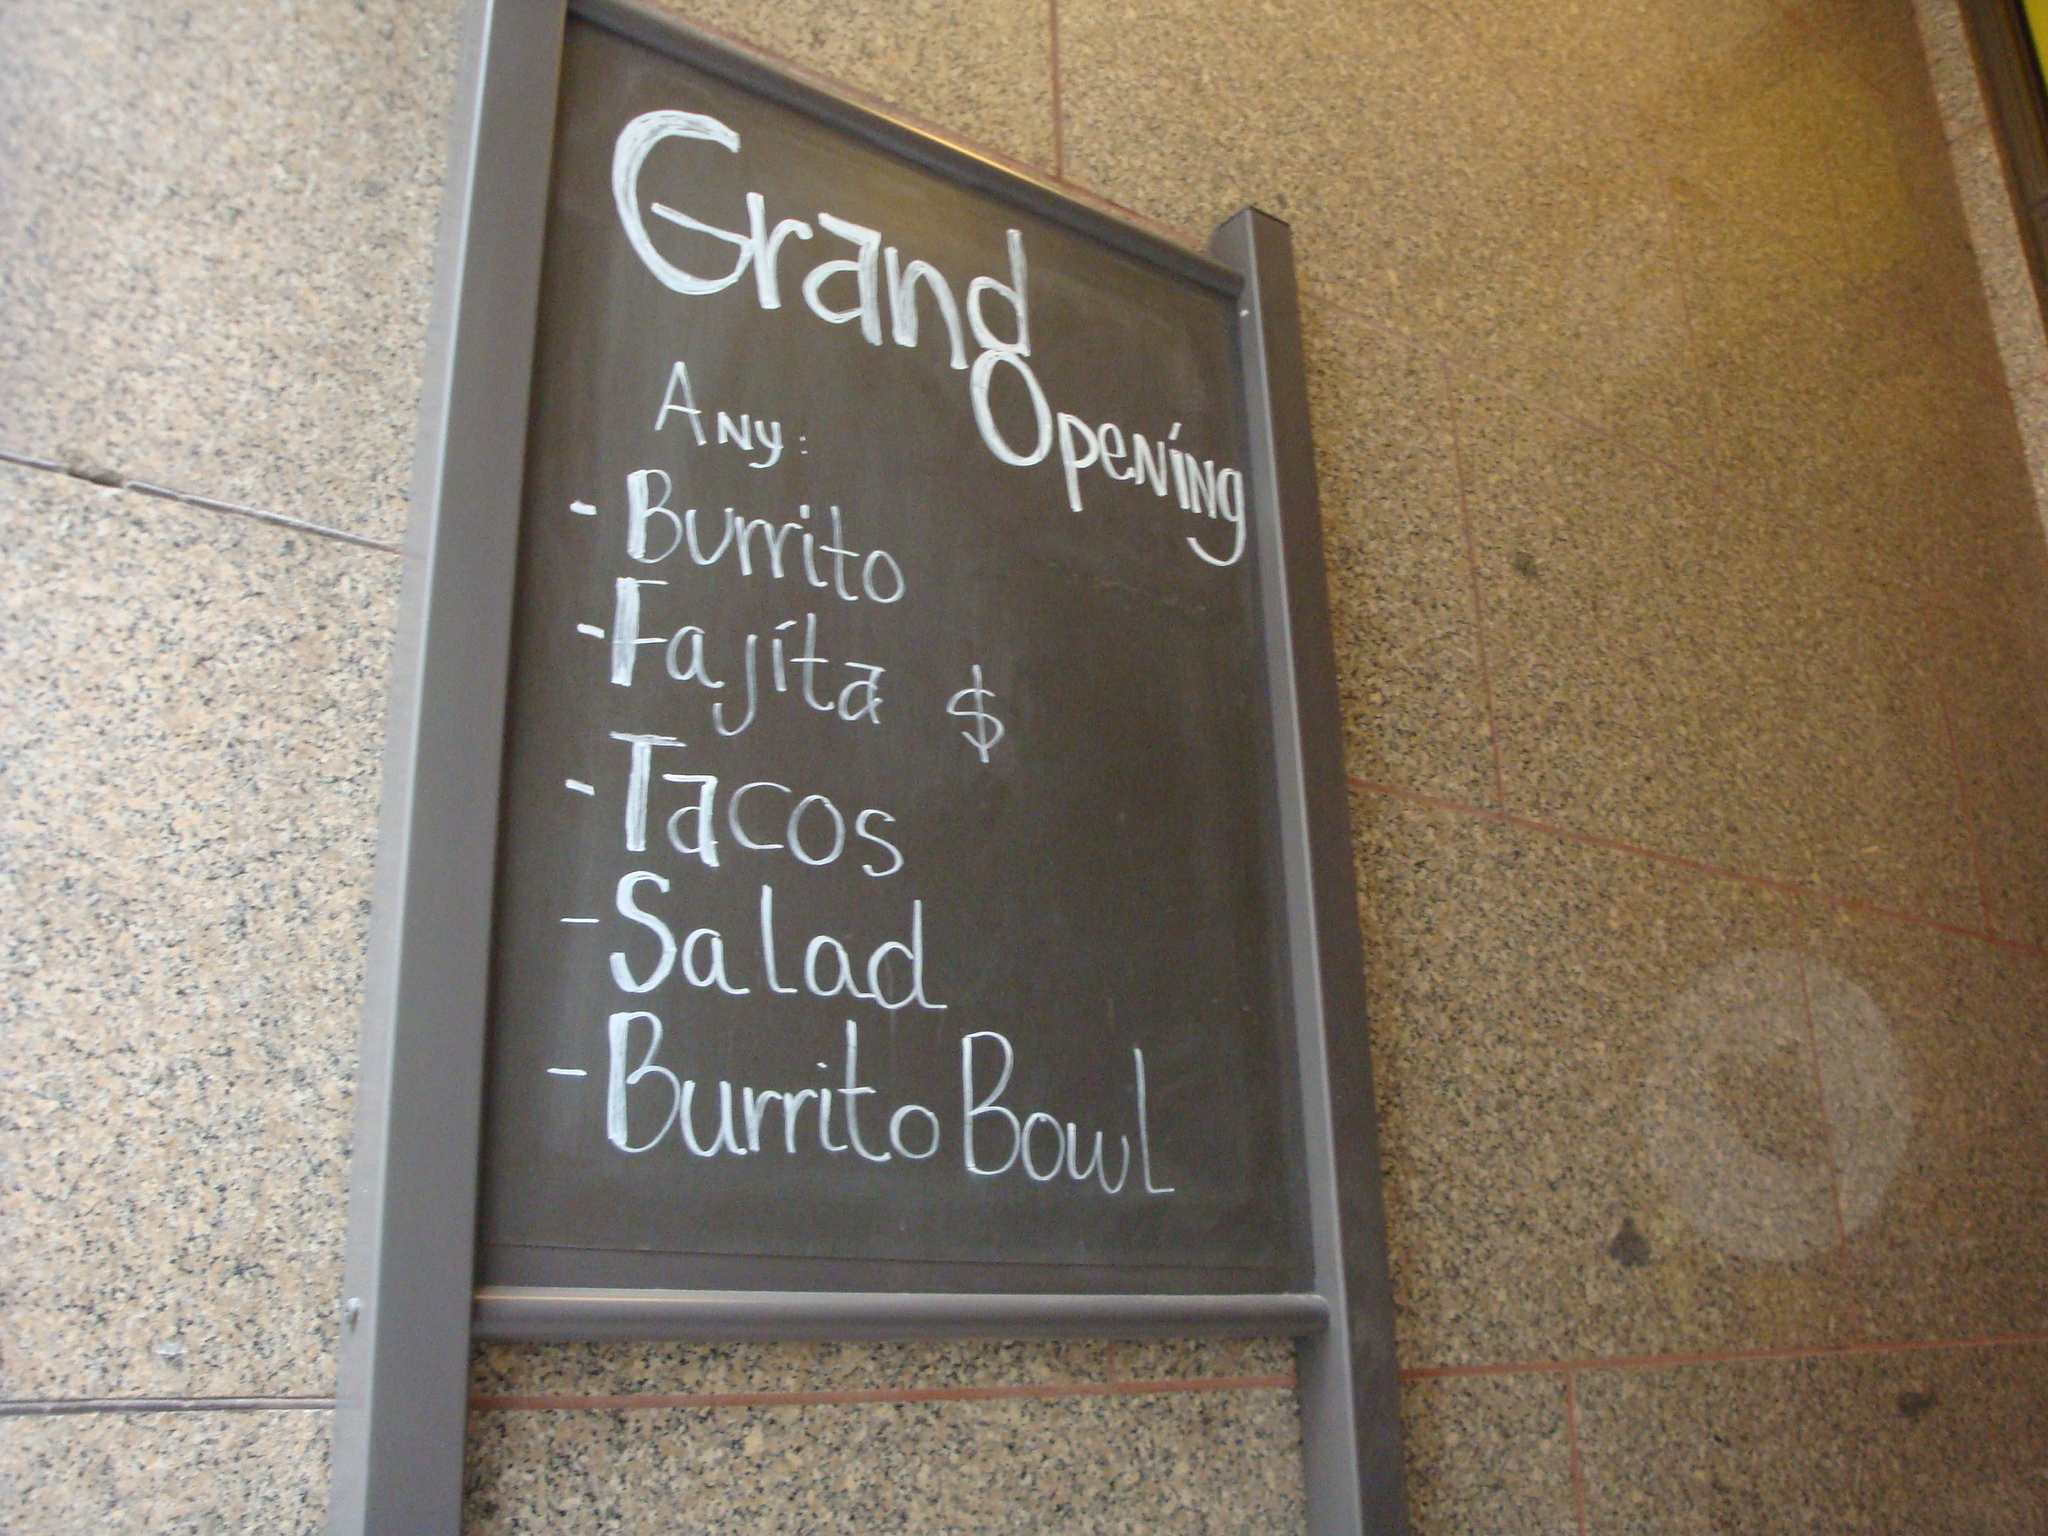 Grand
Opening
Any:
- Burrito
- Fajita $
- Tacos
- Salad
- Burrito Bowl